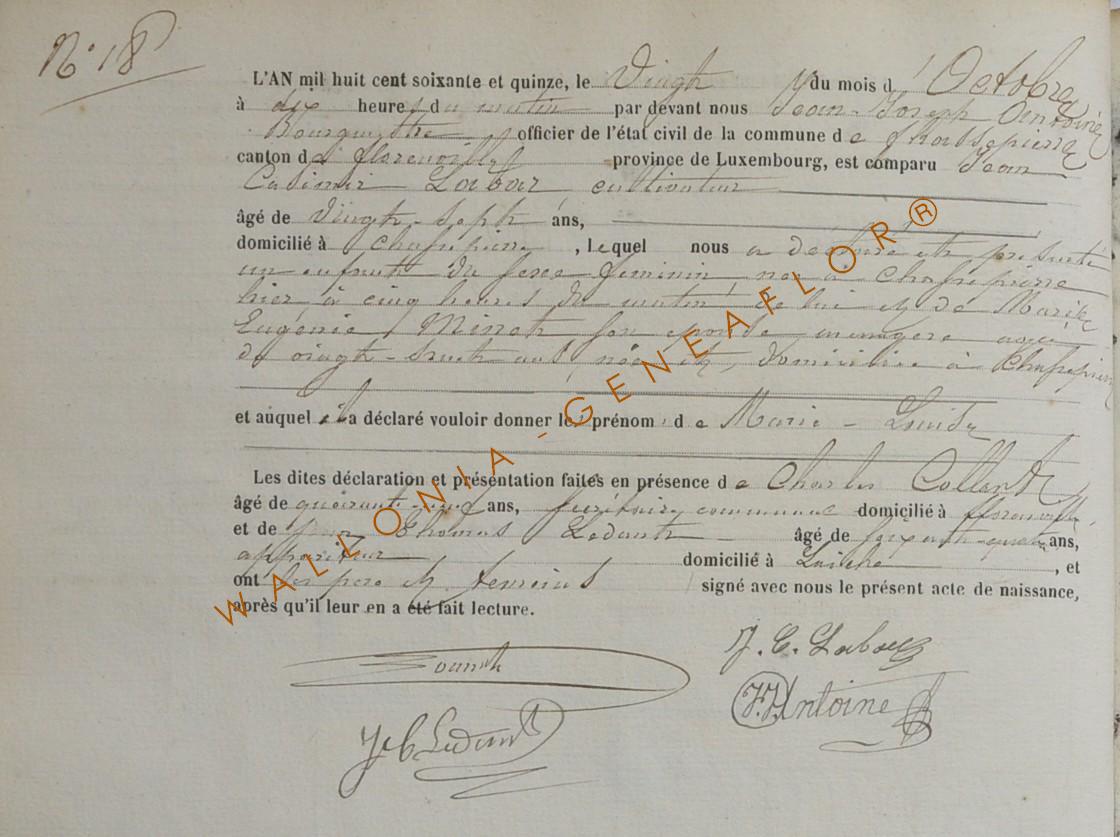 N° 18
L'AN mil huit cent soixante et quinze, le Vingt du mois d'Octobre
à dix heures du matin par devant nous Jean-Joseph Antoine
Bourguestre officier de l'état civil de la commune de
canton de florenville province de Luxembourg, est comparu Jean
Casimir Labar cultivateur
âgé de Vingt-Sept ans,
domicilié à Chassepierre, lequel nous a déclaré et présenté
un enfant du sexe féminin née à Chassepierre
hier à cinq heures du matin de lui et de Marie
Eugénie Minet son épouse ménagère agée
de vingt-huit ans née et domiciliée à Chassepierre
et auquel il a déclaré vouloir donner les prénoms de Marie-Louise
Les dites déclaration et présentation faites en présence de Charles
âgé de quarante ans, Secrétaire communal domicilié à florenville
et de Jean Thomas Ledent âgé de soixante-quatre ans,
appariteur domicilié à Laiche, et
ont les père et témoins signé avec nous le présent acte de naissance,
après qu'il leur en a été fait lecture.
J. C. Labar
J.J. Antoine
WALLONIA-GENEAFLOR®